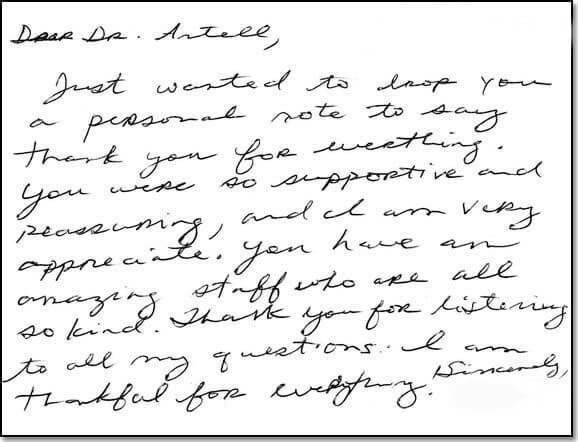 Dear Dr. Artell,
Just wanted to drop you
a personal note to say
thank you for everthing.
You were so supportive and
reassuring, and I am very
appreciate. You have an
amazing staff who are all
so kind. Thank you for listening
to all my questions. I am
thankful for everything. Sincerely,